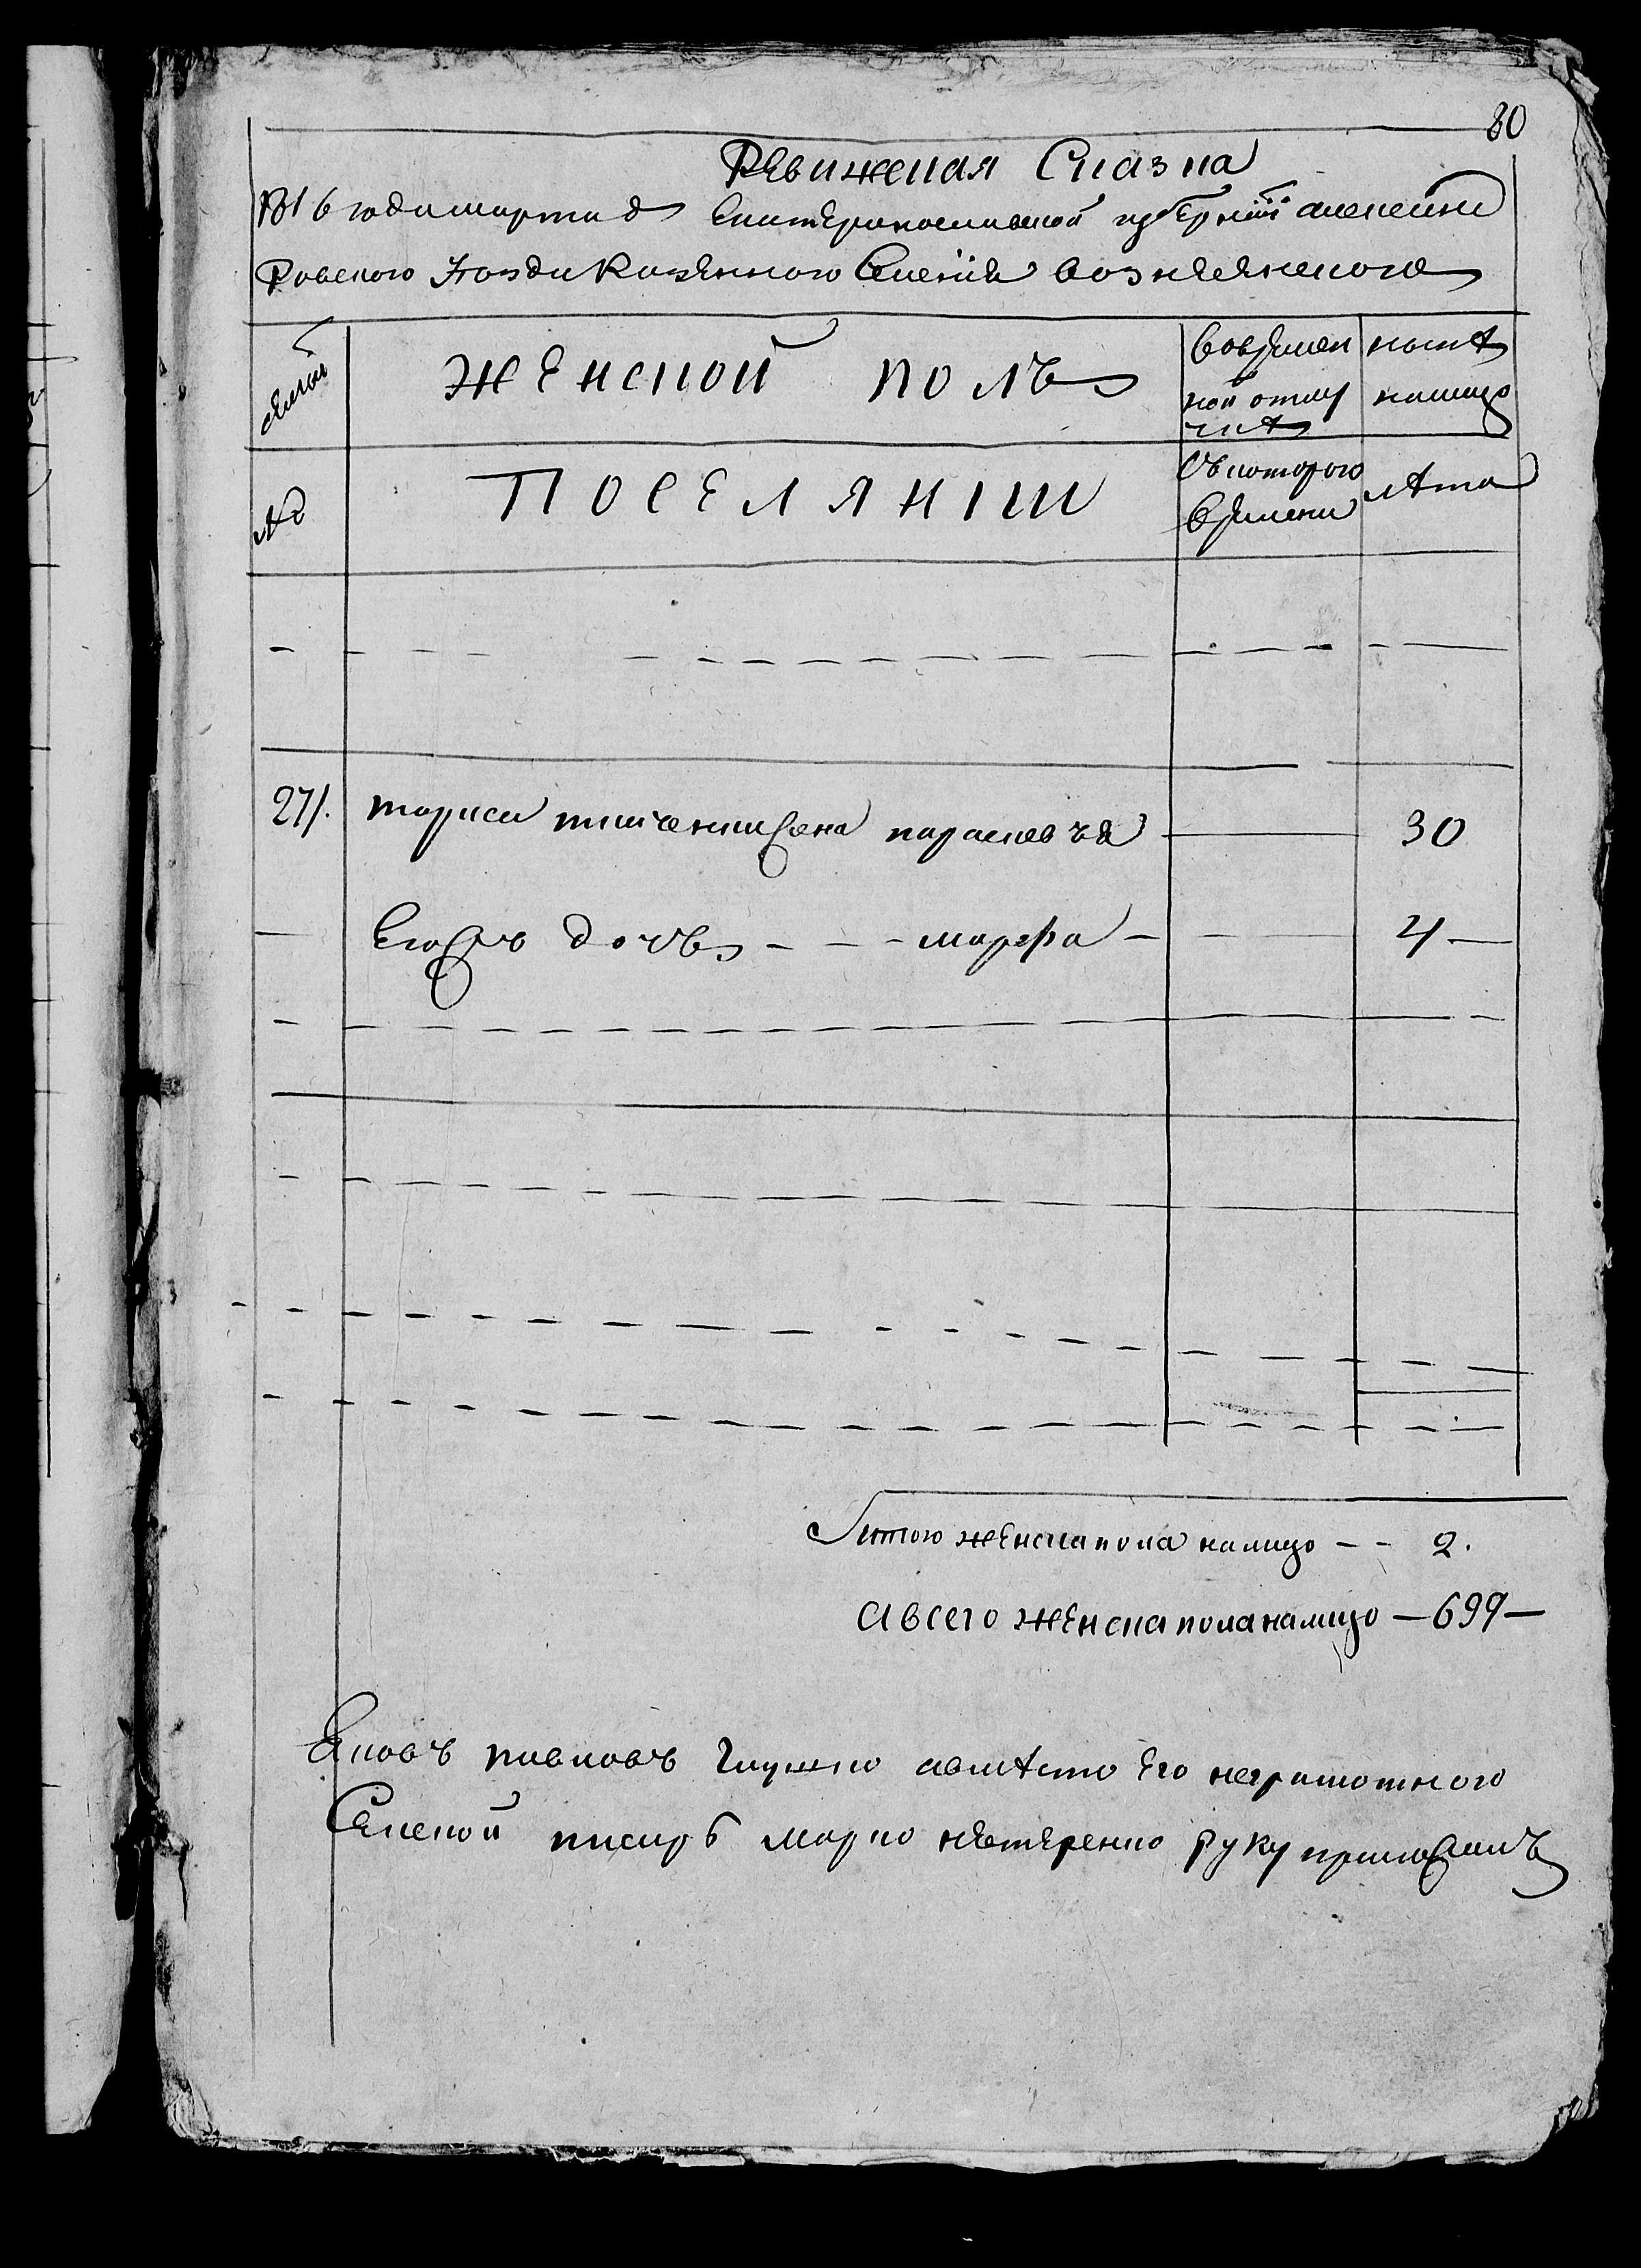 80
Ревижская Сказка
1816 года марта д Екатеринославской губернии алексан
Ровского уезда Казенного Селения вознесенского
семей
женской полъ
вовремен
ной отлу
чкѣ
ныне
налицо
№
поселянки
Съкоторого
времени
лѣта
271. жена парасковъя 30
Его дочь - - - марфа - 4 —
Итого женска пола налицо - - 2.
Авсего женска пола налицо — 699 —
Яковъ павловъ Глушко авмѣсто Его неграмотного
Селской писарь марко руку приложилъ